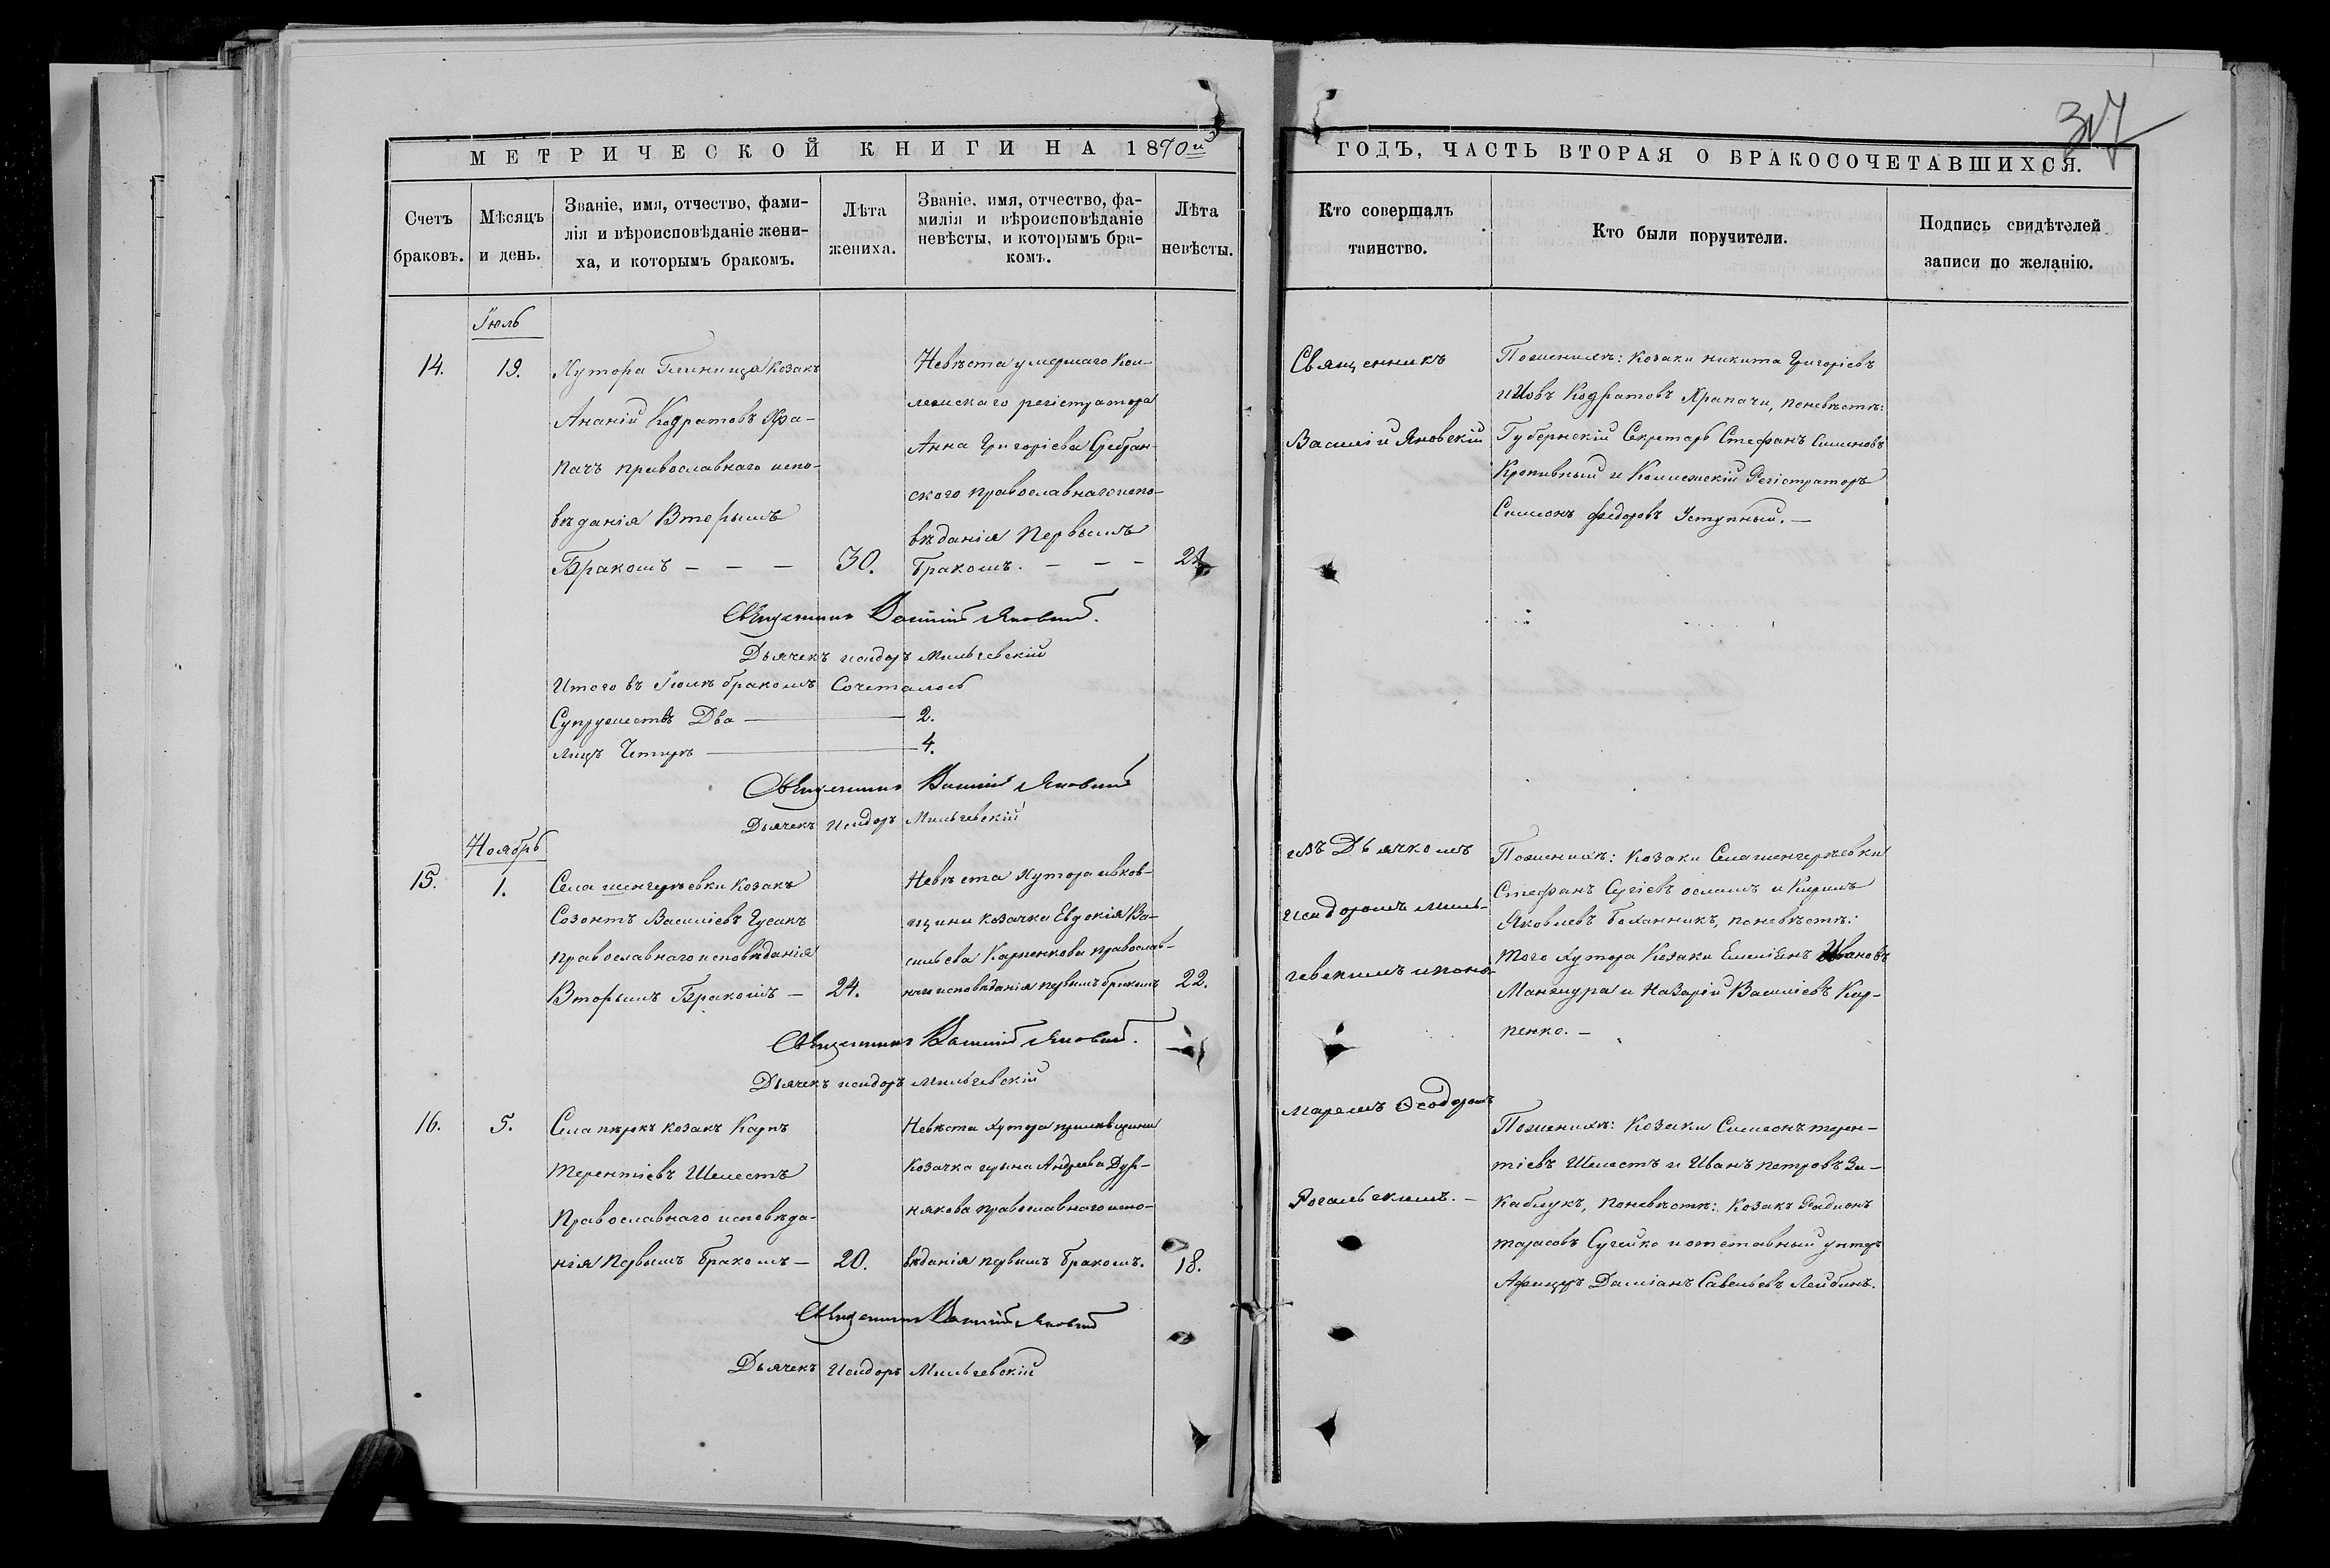 317
МЕТРИЧЕСКОЙ КНИГИ НА 1870й
ГОДЪ, ЧАСТЬ ВТОРАЯ О БРАКОСОЧЕТАВШИХСЯ.
Счетъ браковъ.
Мѣсяцъ и день.
Званіе, имя, отчество, фами-
лія и вѣроисповѣданіе жени-
ха, и которымъ бракомъ.
Лѣта жениха.
Званіе. имя, отчество, фа-
милія и вѣроисповѣданіе
невѣсты, и которымъ бра-
комъ.
Лѣта невѣсты.
Кто совершалъ
таинство.
Кто были поручители.
Подпись свидѣтелей
записи по желанію.
Іюль
14.
19.
Хутора Глиница козакъ
Ананій Кодратовъ Хра-
пачъ православнаго испо-
вѣданія Вторымъ
Бракомъ - - -
30.
Невѣста умершаго Кол
лежскаго регістратора
Анна Григоріева Сребран-
ского православнаго испо-
вѣданія Первымъ
бракомъ. - - -
Священникъ
Василій Яновскій
Пожениxѣ: козаки никита Григоріевъ
и Иовъ Кодратовъ Храпачи, поневѣстѣ:
Губернскій Секретарь Стефанъ Симеоновъ
Кропивный и Коллежскій Регістраторъ
Симеонъ Федоровъ Уступный. —
Священникъ Василій Яновскій.
Дьячекъ исидоръ Мильгевскій
Итого въ Іюлѣ бракомъ Сочеталось
Супружествъ Два — 2.
лицъ Четыре — 4.
Священникъ Василій Яновскій
Дьячекъ Исидоръ Мильгевскій
Ноябрь
15.
1.
Села шенгерѣевки козакъ
Созонтъ Василіевъ Гусакъ
православнаго исповѣданія
Вторымъ Бракомъ —
24.
Невѣста Хутора ивков-
щини козачка Евдокія Ва-
сильева Карпенкова православ-
наго исповѣданія первымъ бракомъ
22.
съ Дьячкомъ
исидоромъ миль-
гевскимъ и поно-
Пожениxѣ: козаки Села шенгерѣевки
Стефанъ Сергіевъ и Кирилъ
Яковлевъ поневѣстѣ:
того хутора Козаки Емеліянъ Ивановъ
Манжура и Назарій Василіевъ Кар-
пенко. —
Священникъ Василій Яновскій.
Дьячекъ исидоръ мильгевскій
16.
5.
Села пѣрокъ козакъ Карпъ
терентіевъ Шелестъ
Православнаго исповѣда-
нія Первымъ бракомъ —
20.
Невѣста Хутора
Козачка Андреева Дур-
някова православнаго испо-
вѣданія первымъ бракомъ.
18.
маремъ Ѳеодоромъ
Рогальскимъ. —
Пожениxѣ: Козаки Симеонъ терен-
тіевъ Шелестъ и Иванъ петровъ За-
каблукъ, поневѣстѣ: Козакъ Радионъ
тарасовъ и отставный унтеръ
Афицеръ Даміанъ Савельевъ Лейбинъ.
Священникъ Василій Яновскій
Дьячекъ Исидоръ Мильгевскій